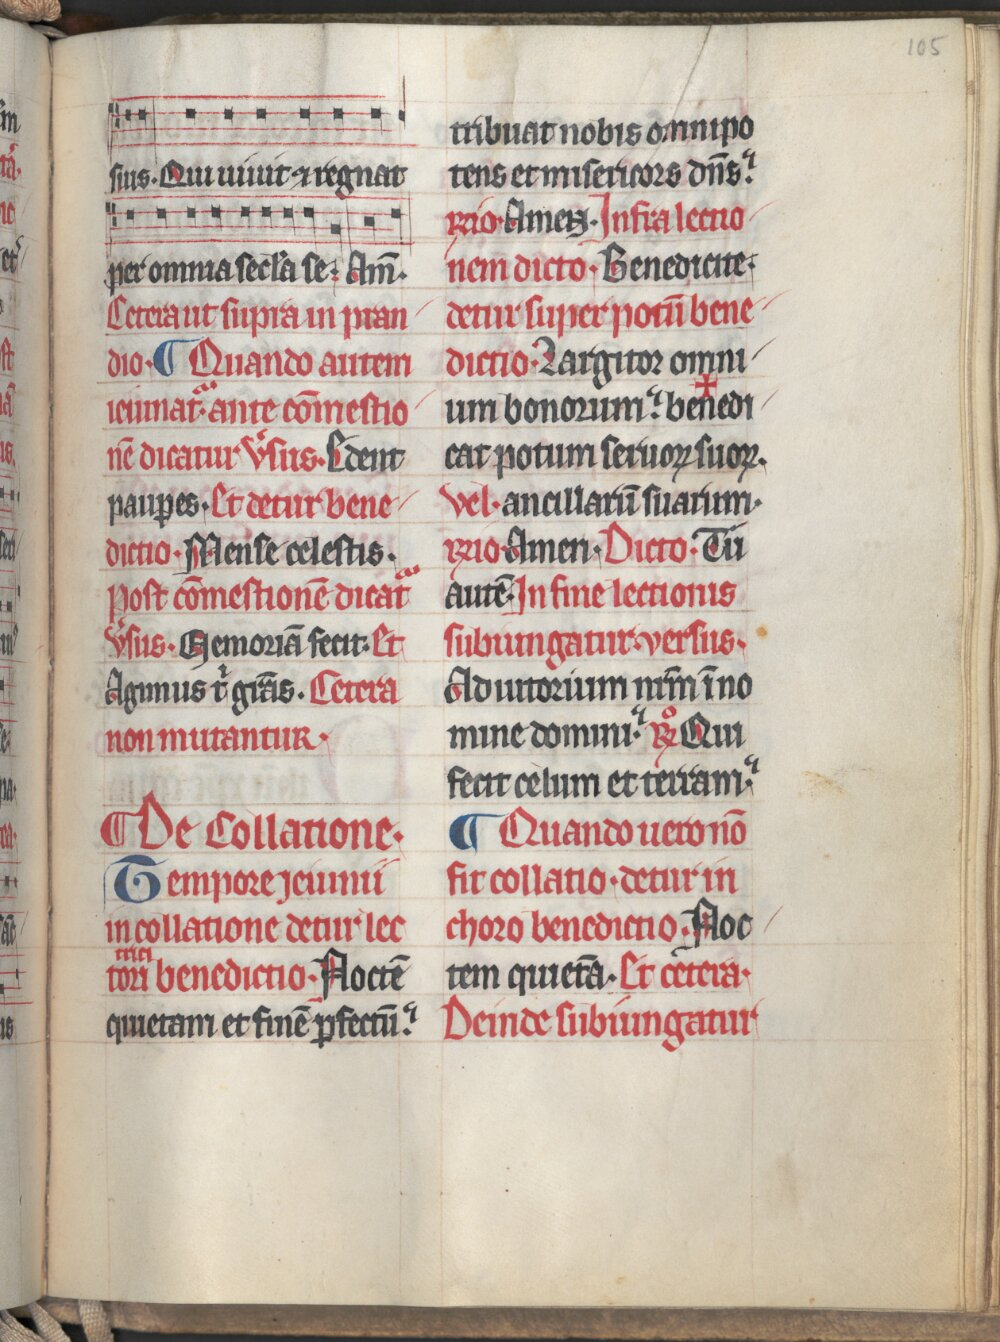 105
sius. Qui uiuit ⁊ regnat
per omnia secl'a se. Am̄.
Cetera ut supra in pran
dio. ¶ Quando autem
ieiunat᷑ ante com̄estio
nē dicatur v̓sus. Edent
paup̱es. Et detur bene
dictio. Mense celestis.
Post com̄estionē dicat᷑
v̓sus. Memoriā fecit. Et
Agimus t̄ gr̄as. Cetera
non mutantur.
¶ De Collatione.
Tempore jeiunii
in collatione detur lec
trici
tori benedictio. Noctē
quietam et finē ꝑfectū.
tribuat nobis omnipo
tens et misericors dn̄s.
R̷io. Amen. Infra lectio
nem dicto. Benedicite.
detur super potū bene
dictio. Largitor omni
um bonorum. bene✝di
cat potum seruoꝝ suoꝝ.
vel. ancillarū suarum.
R̷io. Amen. Dicto. Tu
autē. In fine lectionis
subiungatur versus.
Adiutorium nr̄m ī no
mine domini. R̷o Qui
fecit celum et terram.
¶ Quando uero nō
fit collatio. detur in
choro benedictio. Noc
tem quietā. Et cetera.
Deinde subiungatur